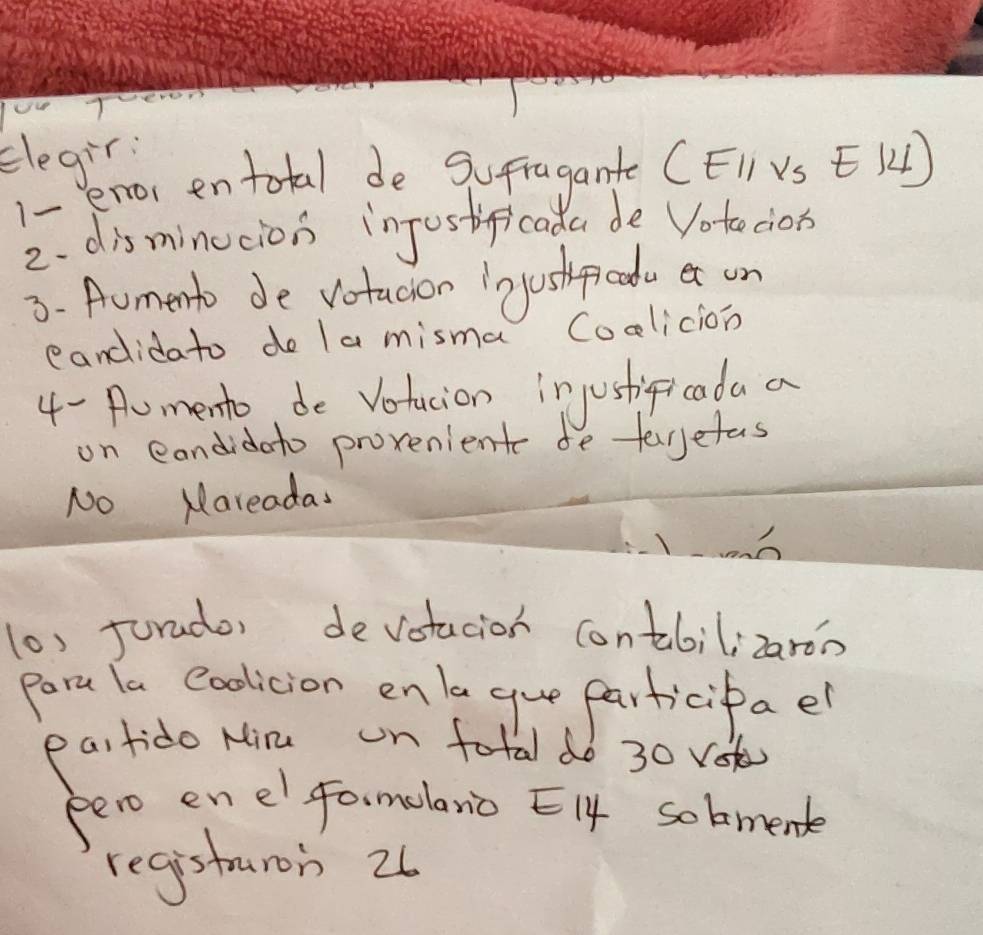 que fueron a votar el puesto
Elegir:
1- error en total de Sufragante (E11 vs E14)
2- disminucion injustificada de Votacion
3- Aumento de votacion injustificada a un
candidato de la misma Coalición
4- Aumento de Votacion injustificada a
un candidato proveniente de tarjetas
No Marcadas
los Jurados de votación contabilizarón
para la Coolicion en la que participa el
partido Mira un total de 30 votos
pero en el formulario E14 solamente
registraron 26